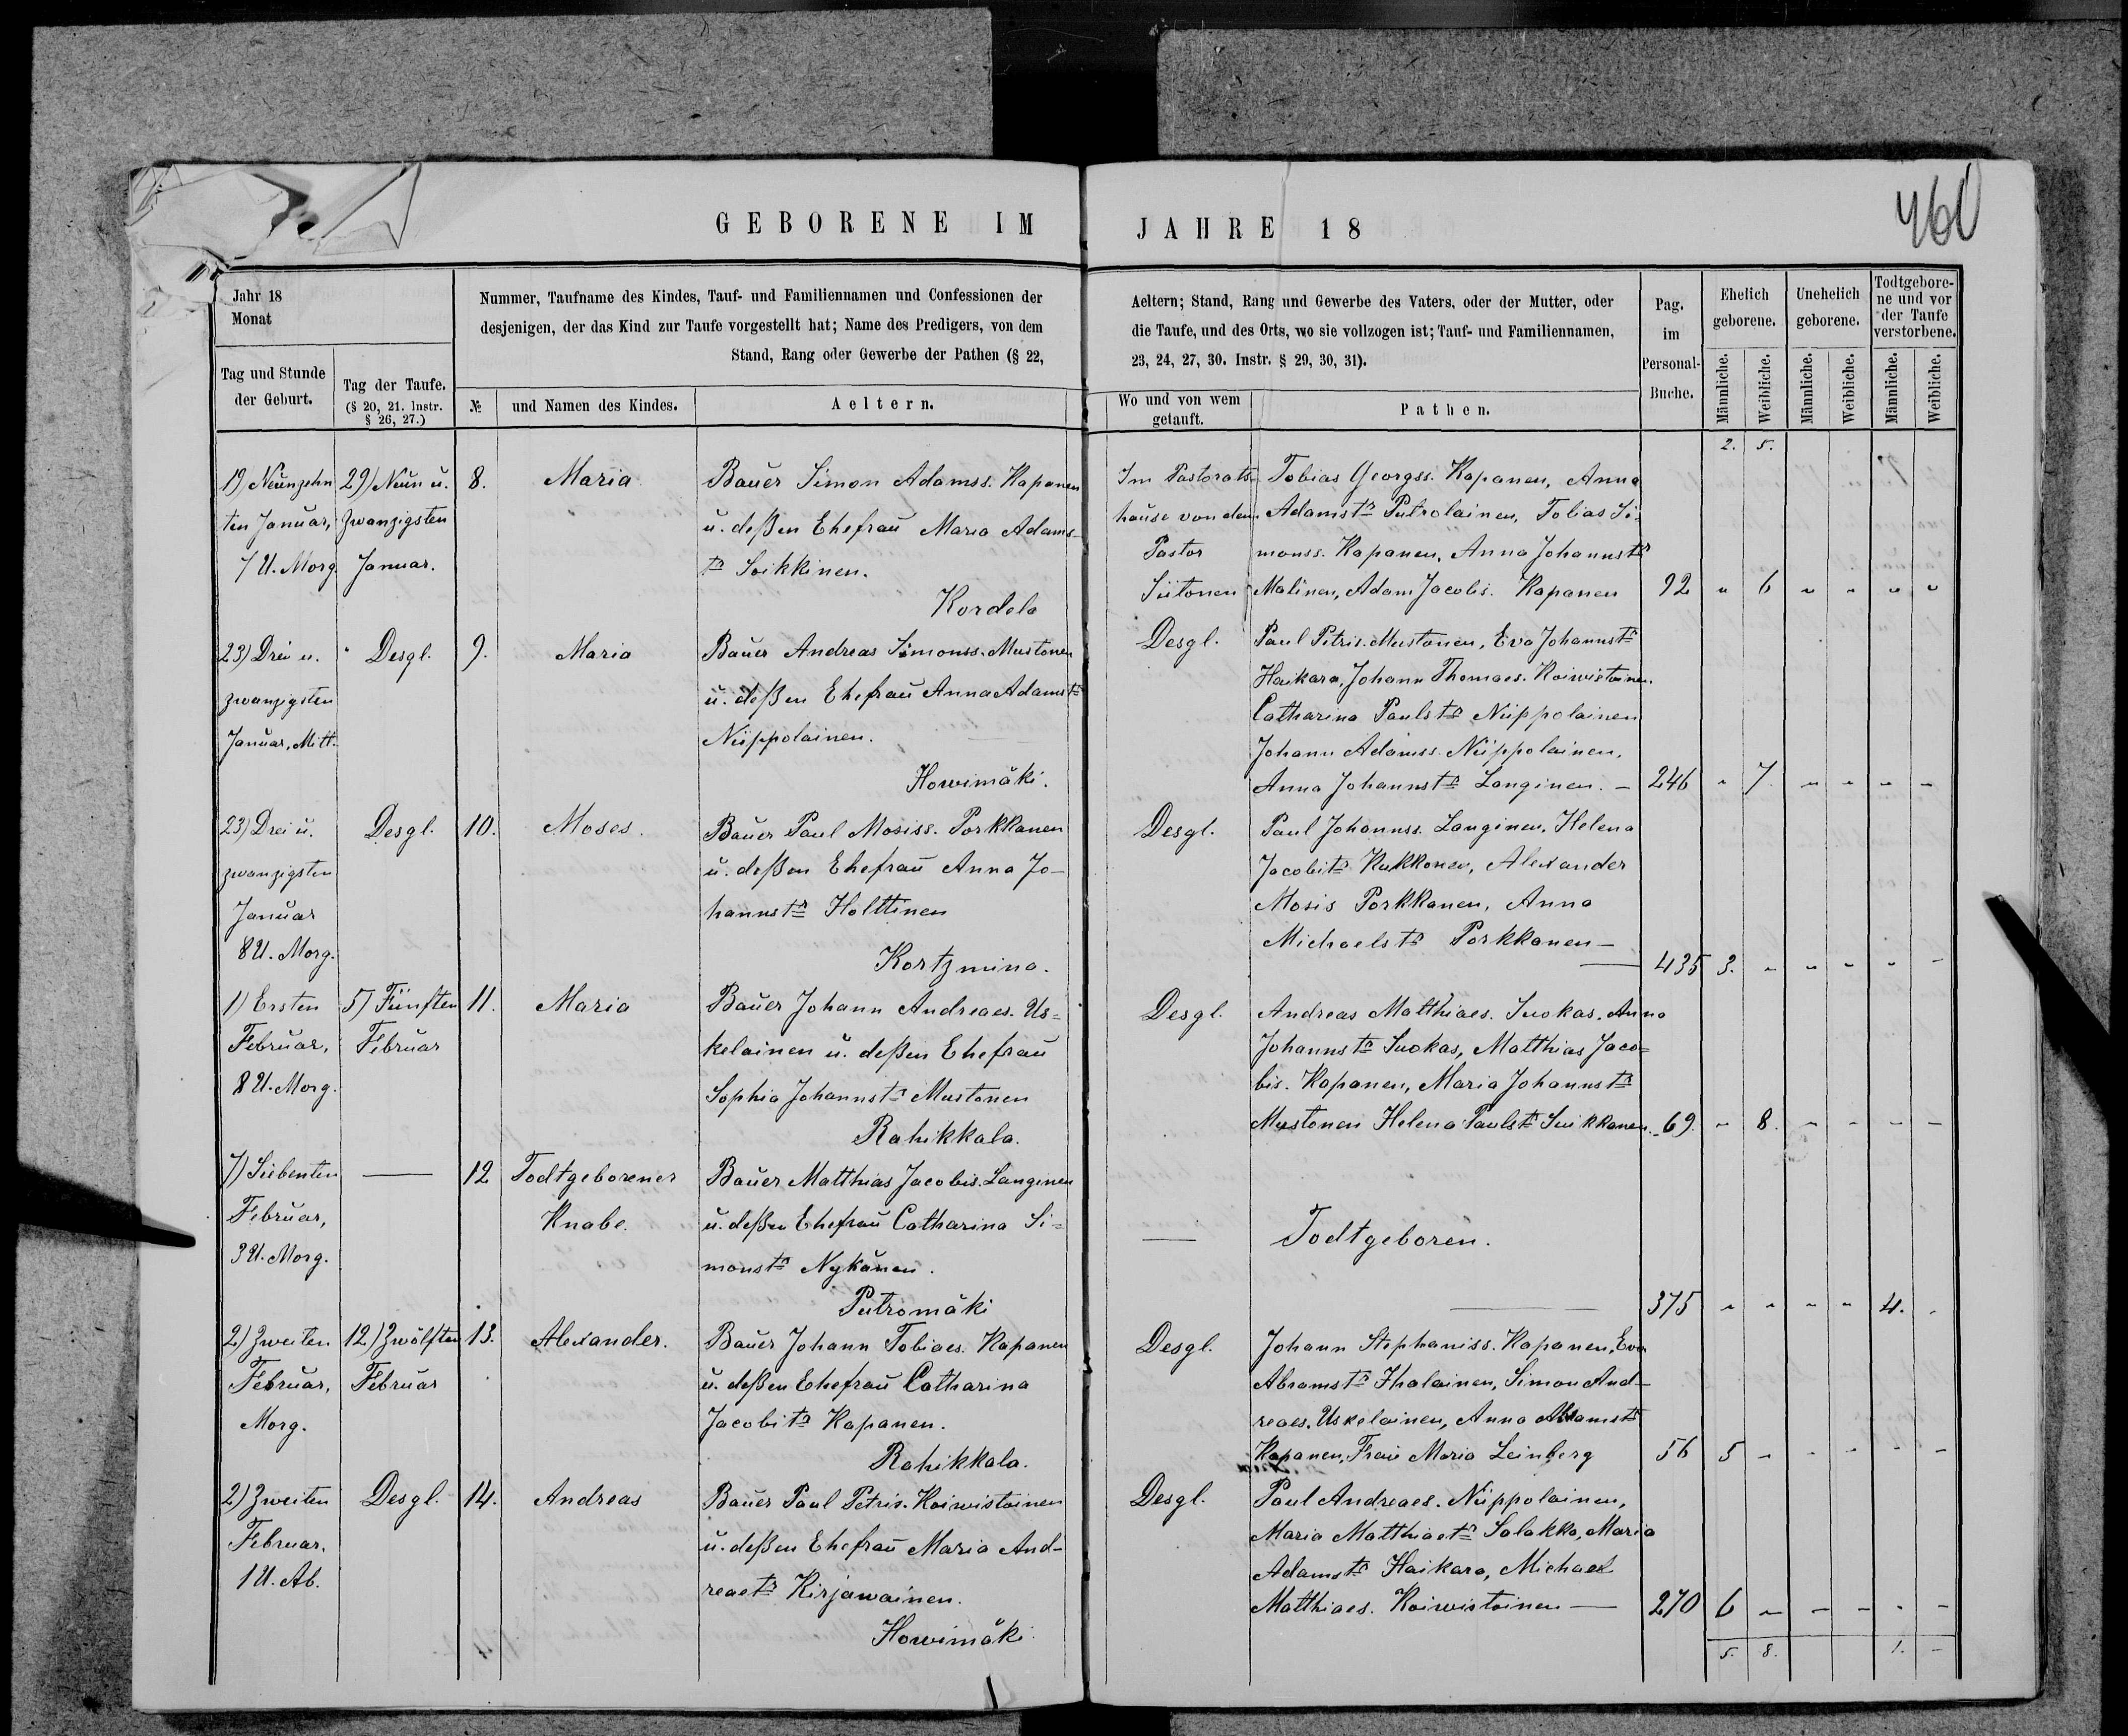 460
GEBORENE IM JAHRE 18
Jahr 18
Monat
Tag und Stunde
der Geburt.
Tag der Taufe.
(§ 20, 21. Instr.
§ 26, 27.)
Nummer, Taufname des Kindes, Tauf- und Familiennamen und Confessionen der
desjenigen, der das Kind zur Taufe vorgestellt hat; Name des Predigers, von dem
Stand, Rang oder Gewerbe der Pathen (§ 22,
№
und Namen des Kindes.
Aeltern.
Aeltern; Stand, Rang und Gewerbe des Vaters, oder der Mutter, oder
die Taufe, und des Orts, wo sie vollzogen ist; Tauf- und Familiennamen,
23, 24, 27, 30. Instr. § 29, 30, 31).
Wo und von wem
getauft.
Pathen.
Pag.
im
Personal-
Buche.
Ehelich
geborene.
Unehelich
geborene.
Todtgebore-
ne und vor
der Taufe
verstorbene.
Männliche.
Weibliche.
Männliche.
Weibliche.
Männliche.
Weibliche.
2. 5.
19) Neunzehn
ten Januar,
7 U. Morg.
29) Neun u.
zwanzigsten
Januar.
8.
Maria
Bauer Simon Adamss. Kapanen
u. deßen Ehefrau Maria Adams-
tr Soikkinen.
Kordela
Im Pastorats-
hause von dem
Pastor
Siitonen
Tobias Georgss. Kapanen, Anna
Adamstr Putrolainen, Tobias Si-
monss. Kapanen, Anna Johannstr
Malinen, Adam Jacobis. Kapanen
92 " 6 " " " "
23) Drei u.
zwanzigsten
Januar, Mitt.
Desgl.
9.
Maria
Bauer Andreas Simonss. Mustonen
u. deßen Ehefrau Anna Adamstr
Niippolainen.
Howimäki.
Desgl.
Paul Petris. Mustonen, Eva Johannstr
Haikara, Johann Thomaes. Koiwistoinen.
Catharina Paulstr Niippolainen
Johann Adamss. Niippolainen.
Anna Johannstr Langinen. –
246 " 7 " " " "
23) Drei u.
zwanzigsten
Januar
8 U. Morg.
Desgl.
10.
Moses.
Bauer Paul Mosiss. Porkkanen
u. deßen Ehefrau Anna Jo-
hannstr Holttinen
Kortzmina.
Desgl.
Paul Johannss. Langinen, Helena
Jacobitr Kukkonen, Alexander
Mosis Porkkanen, Anna
Michaelstr Porkkanen –
435 3. " " " " "
1) Ersten
Februar,
8 U. Morg.
5) Fünften
Februar
11.
Maria
Bauer Johann Andreaes. Us-
kelainen u. deßen Ehefrau
Sophia Johannstr Mustonen
Rahikkala.
Desgl.
Andreas Matthiaes. Suokas. Anna
Johannstr Suokas, Matthias Jaco-
bis. Kapanen, Maria Johannstr
Mustonen Helena Paulstr Suikkanen.
69. " 8. " " " "
7) Siebenten
Februar,
3 U. Morg.
12
Todtgeborener
Knabe.
Bauer Matthias Jacobis. Langinen
u. deßen Ehefrau Catharina Si-
monstr Nykänen.
Putromäki
Todtgeboren.
375 " " " " 4. "
2) Zweiten
Februar,
Morg.
12) Zwölften
Februar
13.
Alexander.
Bauer Johann Tobiaes. Kapanen
u. deßen Ehefrau Catharina
Jacobitr Kapanen.
Rahikkala.
Desgl.
Johann Stephaniss. Kapanen, Eva
Abramstr Ihalainen, Simon And-
reaes. Uskelainen, Anna Abramstr
Kapanen, Frau Maria Leinberg
56 5 " " " " "
2) Zweiten
Februar.
1 U. Ab.
Desgl.
14.
Andreas
Bauer Paul Petris. Koiwistoinen
u. deßen Ehefrau Maria And-
reaetr Kirjawainen.
Howimäki
Desgl.
Paul Andreaes. Niippolainen,
Maria Matthiaetr Salakka, Maria
Adamstr Haikara, Michael
Matthiaes. Koiwistoinen –
270 6 " " " " "
5. 8. 1. –